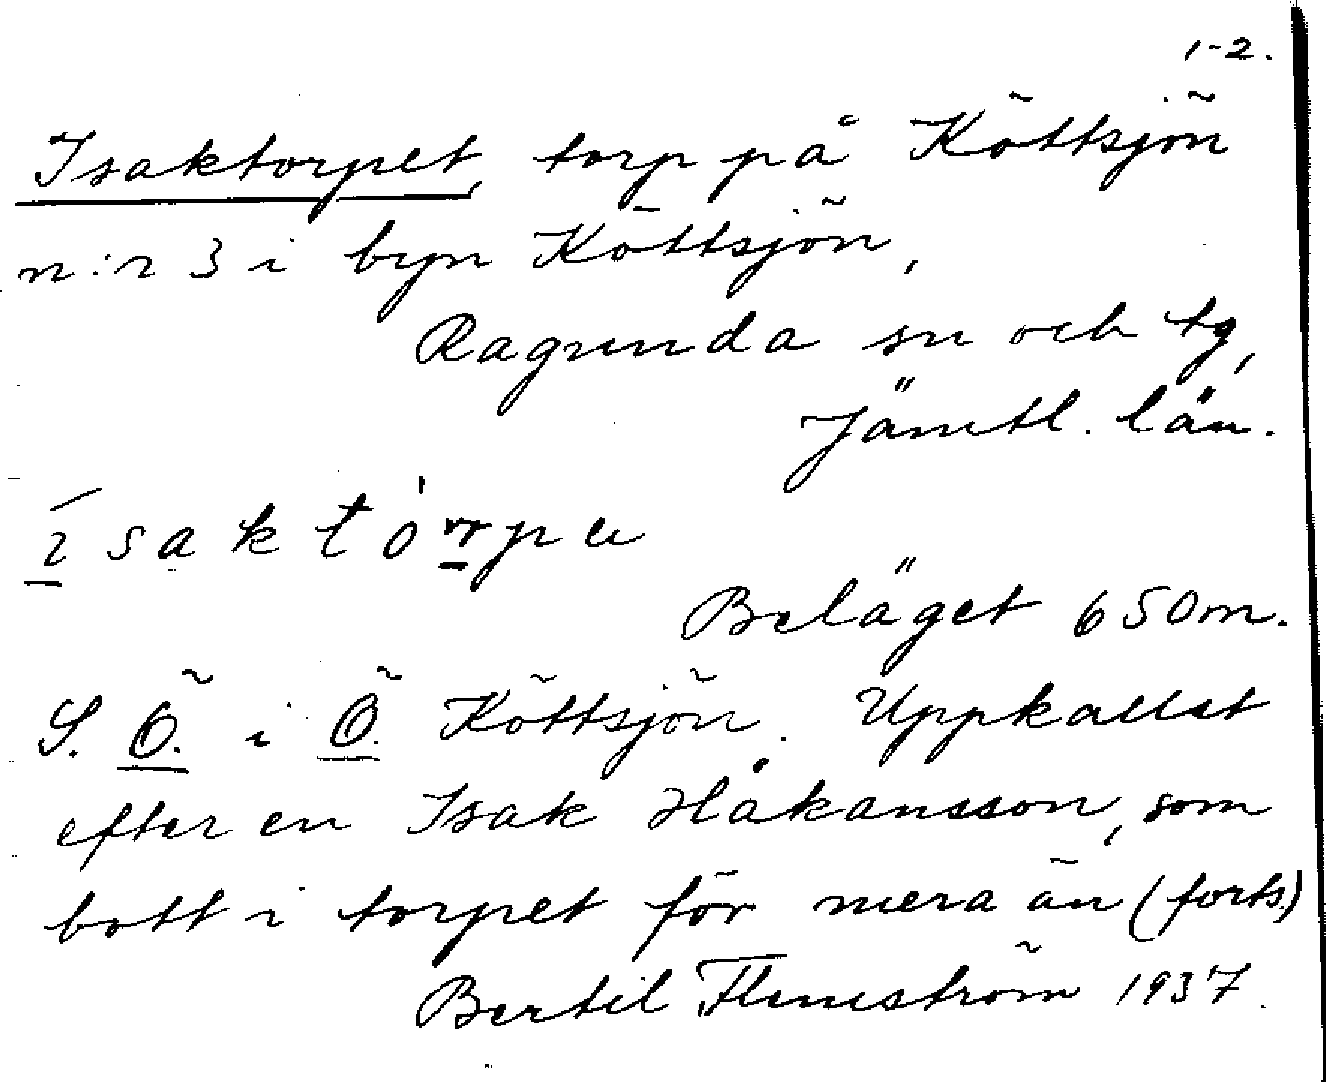 1-2.
Isaktorpet, torp på Köttsjön
n:r 3 i byn Köttsjön,
Ragunda sn och tg,
Jämtl. län.
ísaktórpu
Beläget 650m.
S. Ö. i Ö. Köttsjön. Uppkallat
efter en Isak Håkansson, som
bott i torpet för mera än (forts.)
Bertil Flemström 1937.